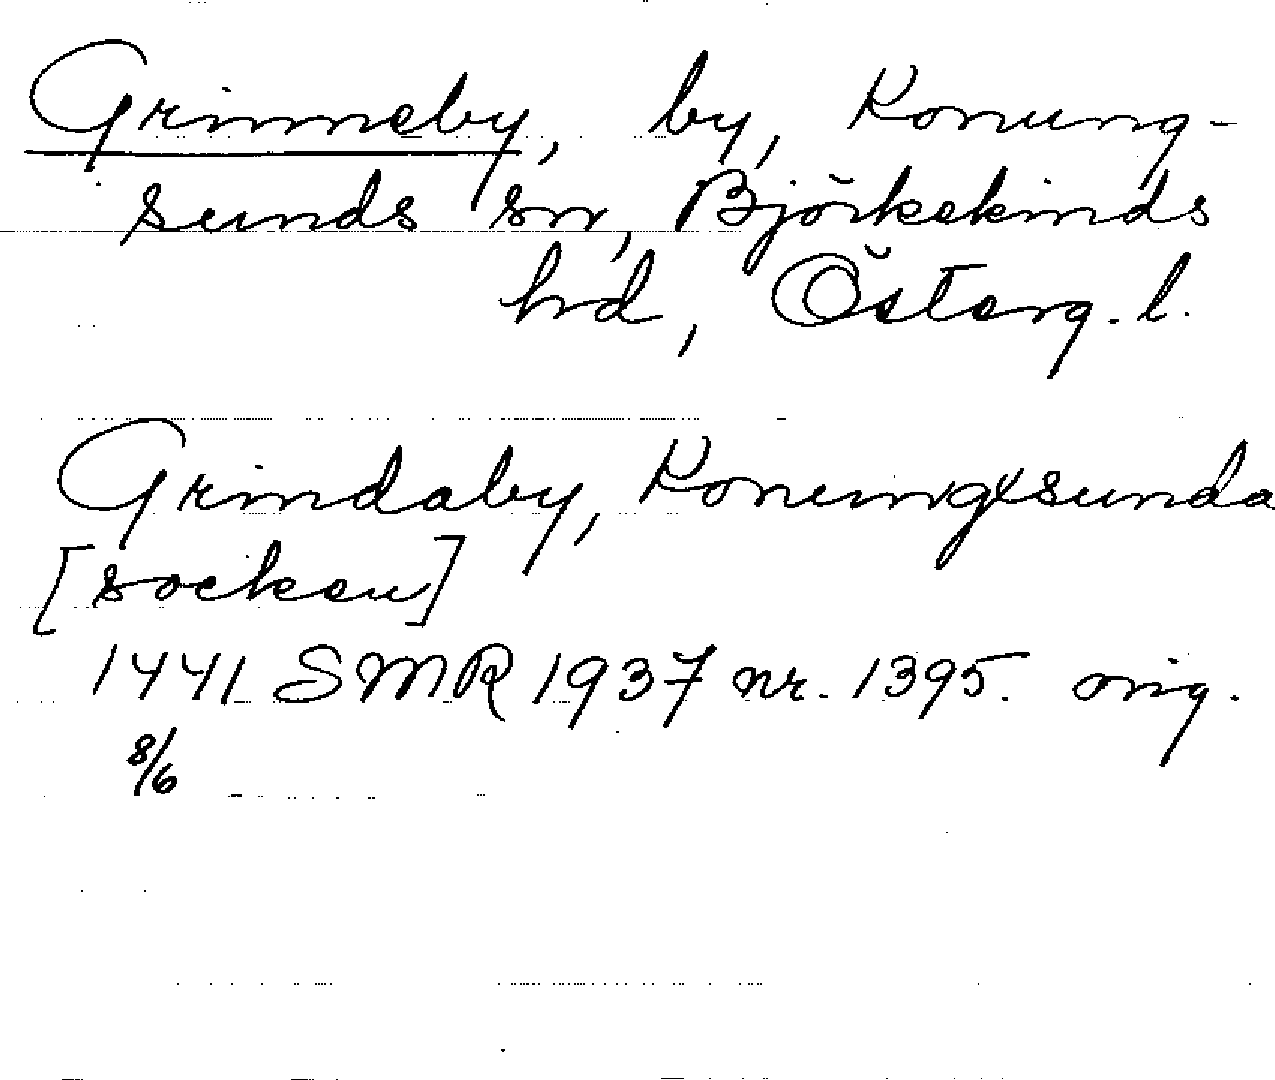 Grinneby, by, Konung-
sunds sn, Björkekinds
hd, Österg. l.
Grindaby, Konungxsunda
[socken]
1441 SMR 1937 nr. 1395. orig.
8/6